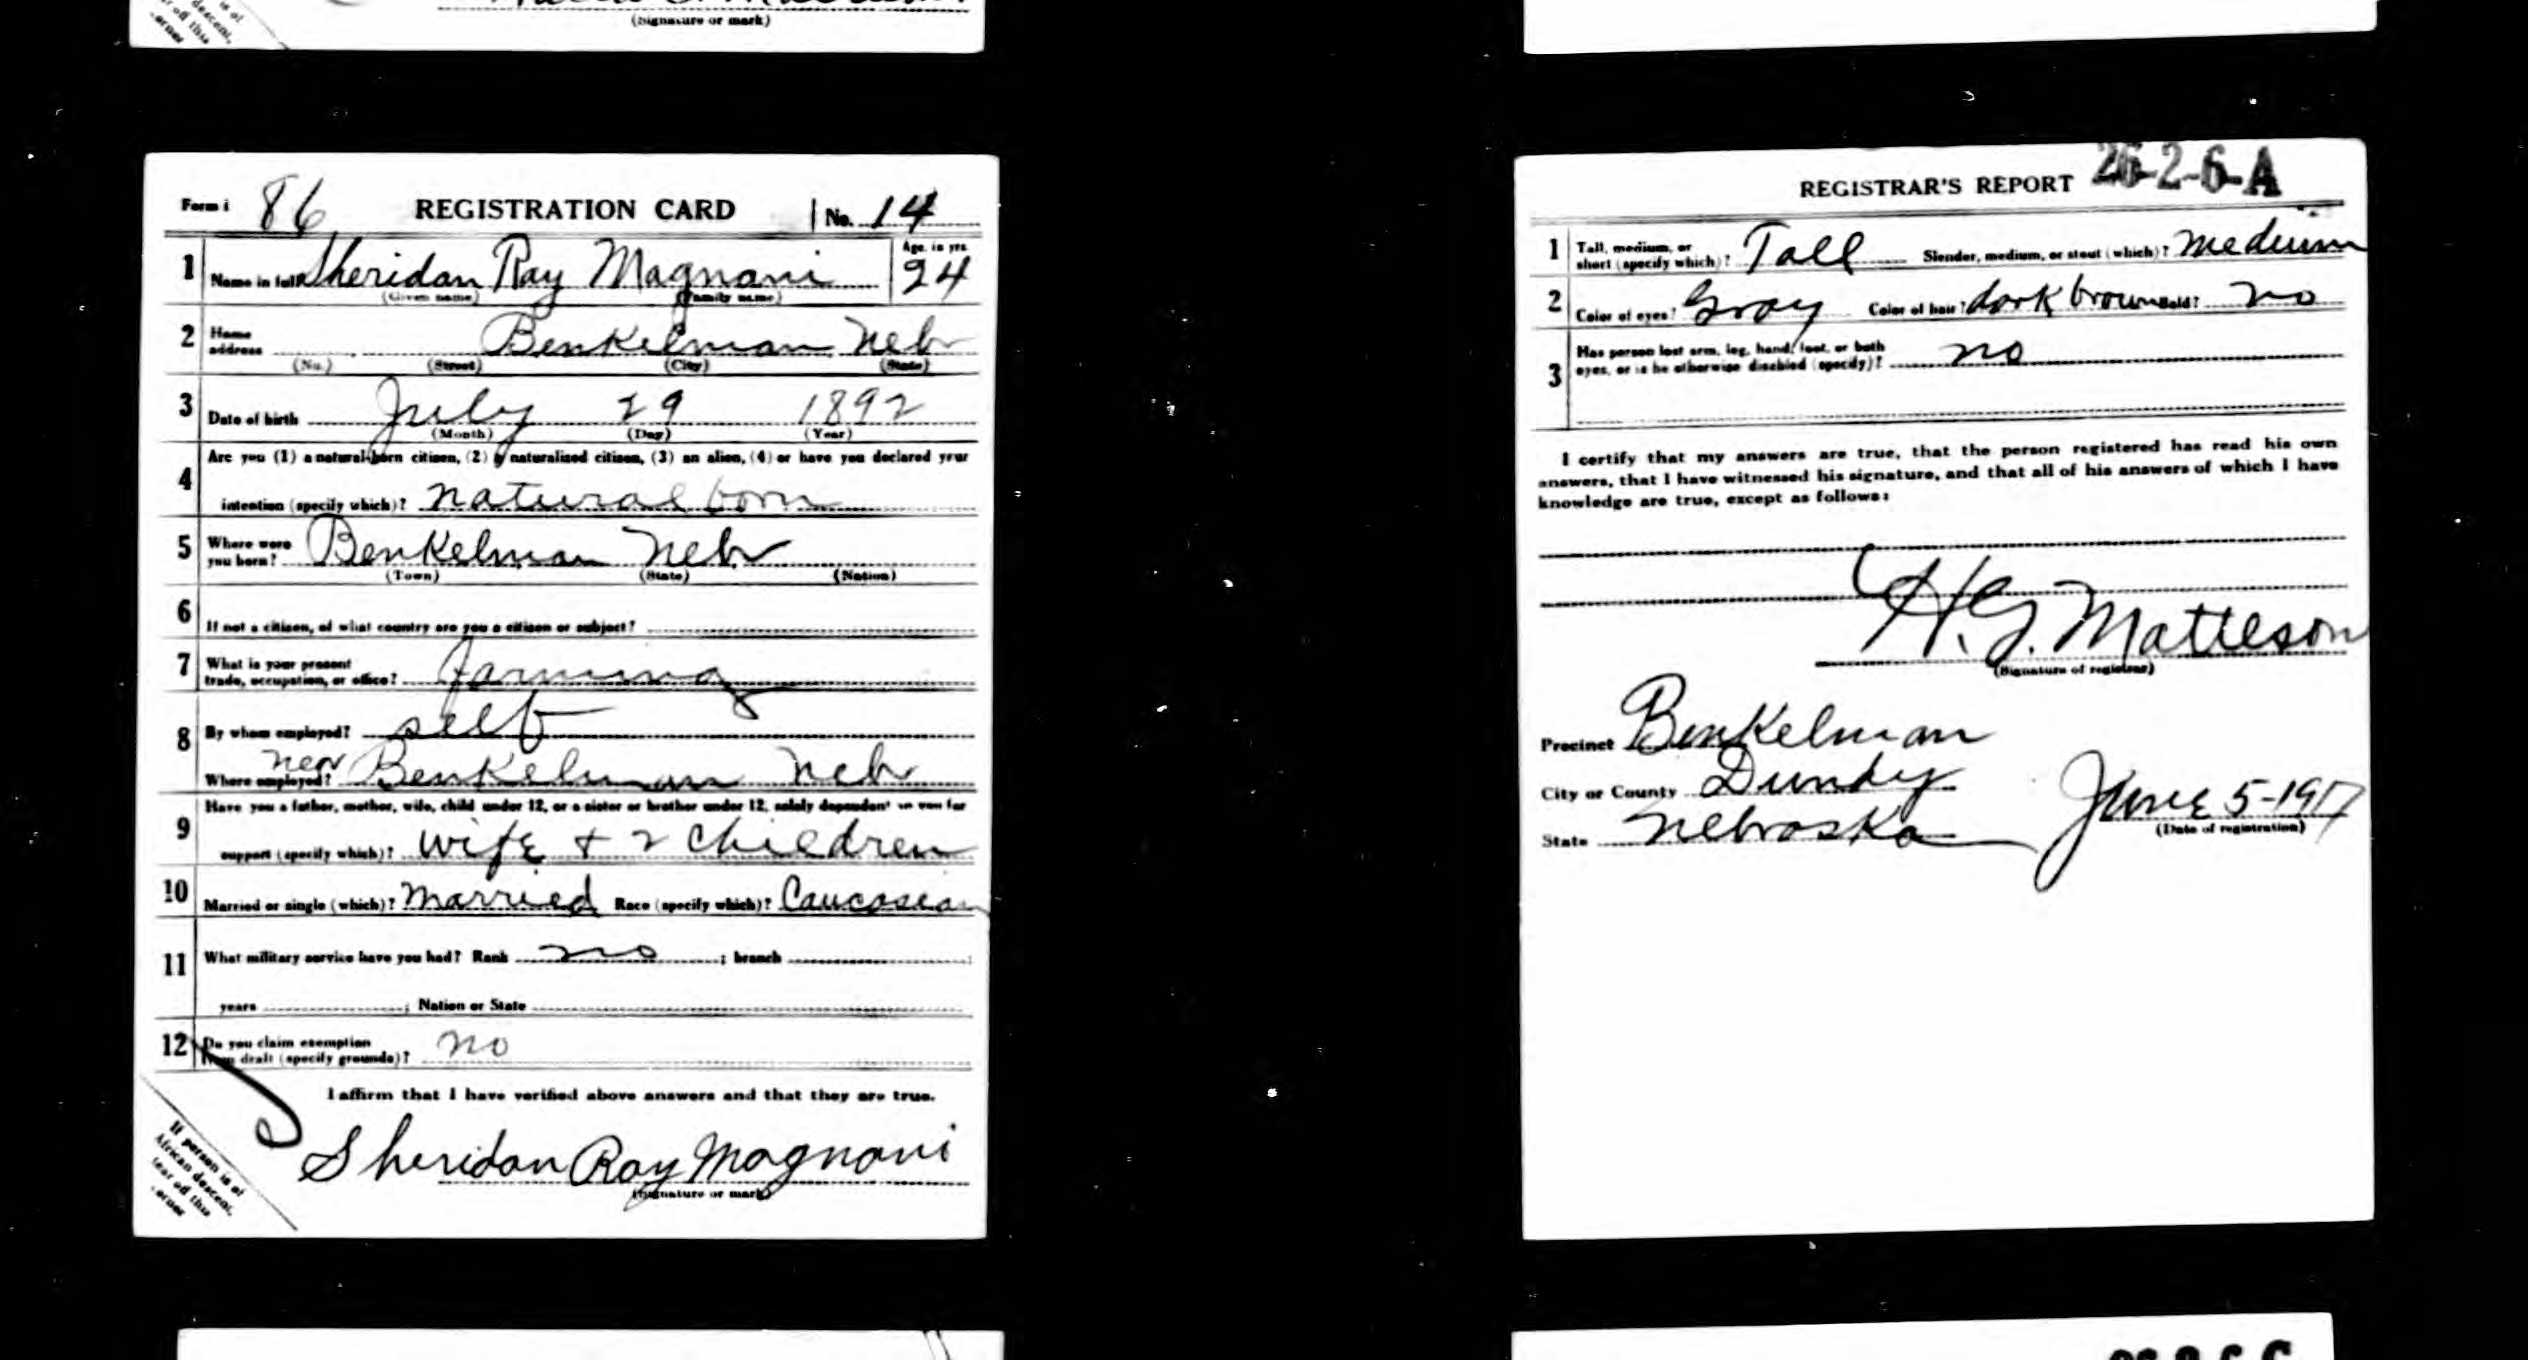 (Signature or mark)
is of
descent,
r off this
orner
Form 1 86 REGISTRATION CARD No. 14
1 Name in full Sheridan Ray Magnani Age, in yrs. 24
(Given name) (Family name)
2 Home address Benkelman Nebr
(No.) (Street) (City) (State)
3 Date of birth July 29 1892
(Month) (Day) (Year)
Are you (1) a natural-born citizen, (2) a naturalized citizen, (3) an alien, (4) or have you declared your
4 intention (specify which)? natural born
5 Where were you born? Benkelman Nebr
(Town) (State) (Nation)
6 If not a citizen, of what country are you a citizen or subject?
7 What is your present trade, occupation, or office? farming
8 By whom employed? self
Where employed? near Benkelman Nebr
Have you a father, mother, wife, child under 12, or a sister or brother under 12, solely dependent on you for
9 support (specify which)? wife + 2 children
10 Married or single (which)? married Race (specify which)? Caucasean
11 What military service have you had? Rank no ; branch ;
years ; Nation or State
12 Do you claim exemption from draft (specify grounds)? no
I affirm that I have verified above answers and that they are true.
Sheridan Ray Magnani
(Signature or mark)
If person is of
African descent,
tear off this
corner
REGISTRAR'S REPORT 26-2-6-A
1 Tall, medium, or short (specify which)? Tall Slender, medium, or stout (which)? medium
2 Color of eyes? Gray Color of hair? dark brown Bald? no
3 Has person lost arm, leg, hand, foot, or both eyes, or is he otherwise disabled (specify)? no
I certify that my answers are true, that the person registered has read his own
answers, that I have witnessed his signature, and that all of his answers of which I have
knowledge are true, except as follows:
H. G. Matteson
(Signature of registrar)
Precinct Benkelman
City or County Dundy
June 5-1917
State Nebraska
(Date of registration)